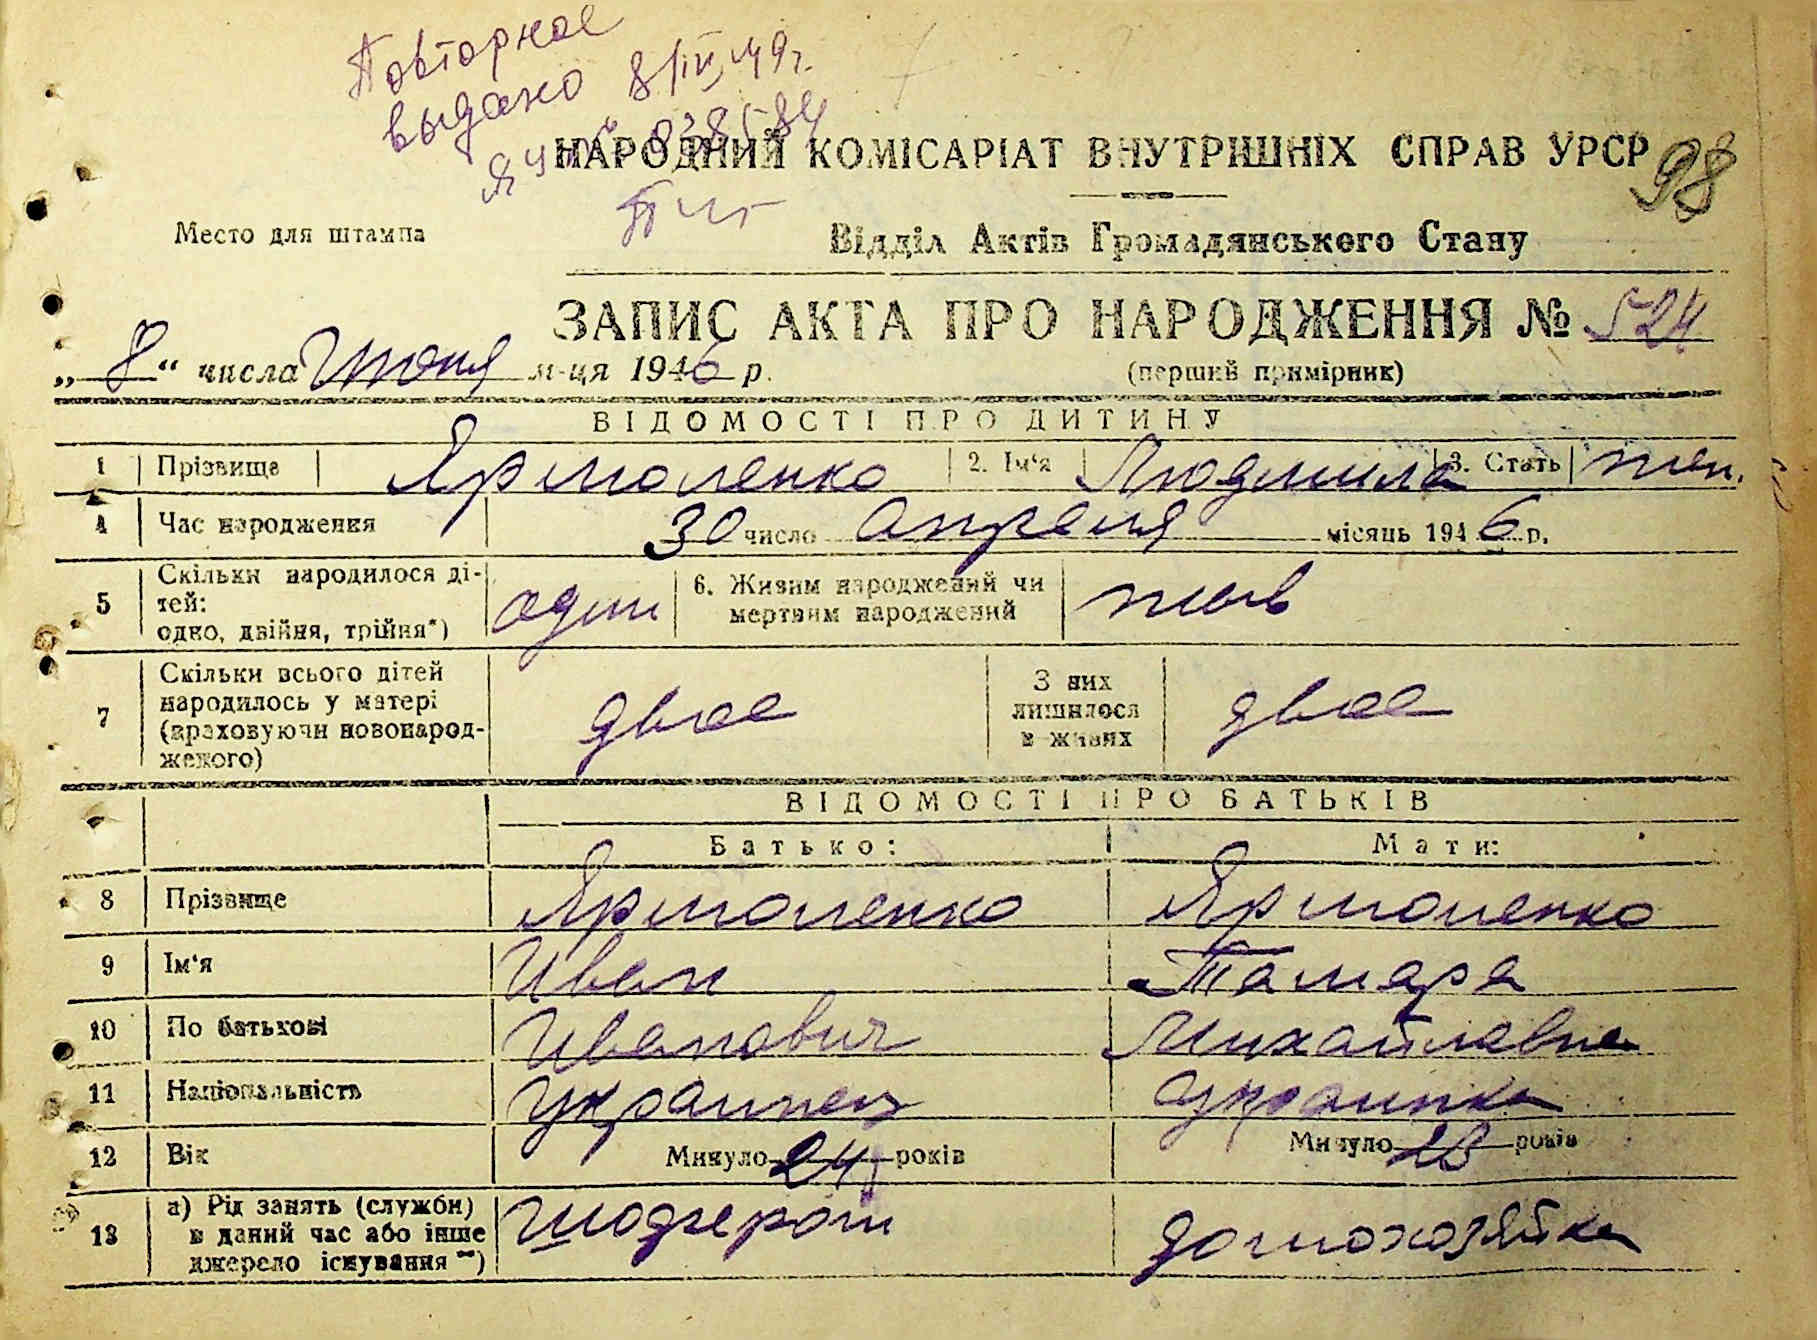 Повторное
выдано 8/IV, 49г.
ЯЧ № 038584
НАРОДНИЙ КОМІСАРІАТ ВНУТРІШНІХ СПРАВ УРСР 98
Место для штампа
Відділ Актів Громадянського Стану
ЗАПИС АКТА ПРО НАРОДЖЕННЯ № 524
„8“ числа Июня м-ця 1946 р. (перший примірник)
ВІДОМОСТІ ПРО ДИТИНУ
1 Прізвище Ярмоленко 2. Ім‘я Людмила 3. Стать жен.
4 Час народження 30 число Апреля місяць 1946 р.
5 Скільки народилося ді-
тей:
одно, двійня, трійня*) один
6. Живим народжений чи
мертвим народжений жив
7 Скільки всього дітей
народилось у матері
(враховуючи новонарод-
женого) двое
З них
лишилося
в живих двое
ВІДОМОСТІ ПРО БАТЬКІВ
Батько: Мати:
8 Прізвище Ярмоленко Ярмоленко
9 Ім‘я Иван Тамара
10 По батькові Иванович Михайловна
11 Національність Украинец Украинка
12 Вік Минуло 24 років Минуло років
13 а) Рід занять (служби)
в даний час або інше
джерело існування **) домохозяйка